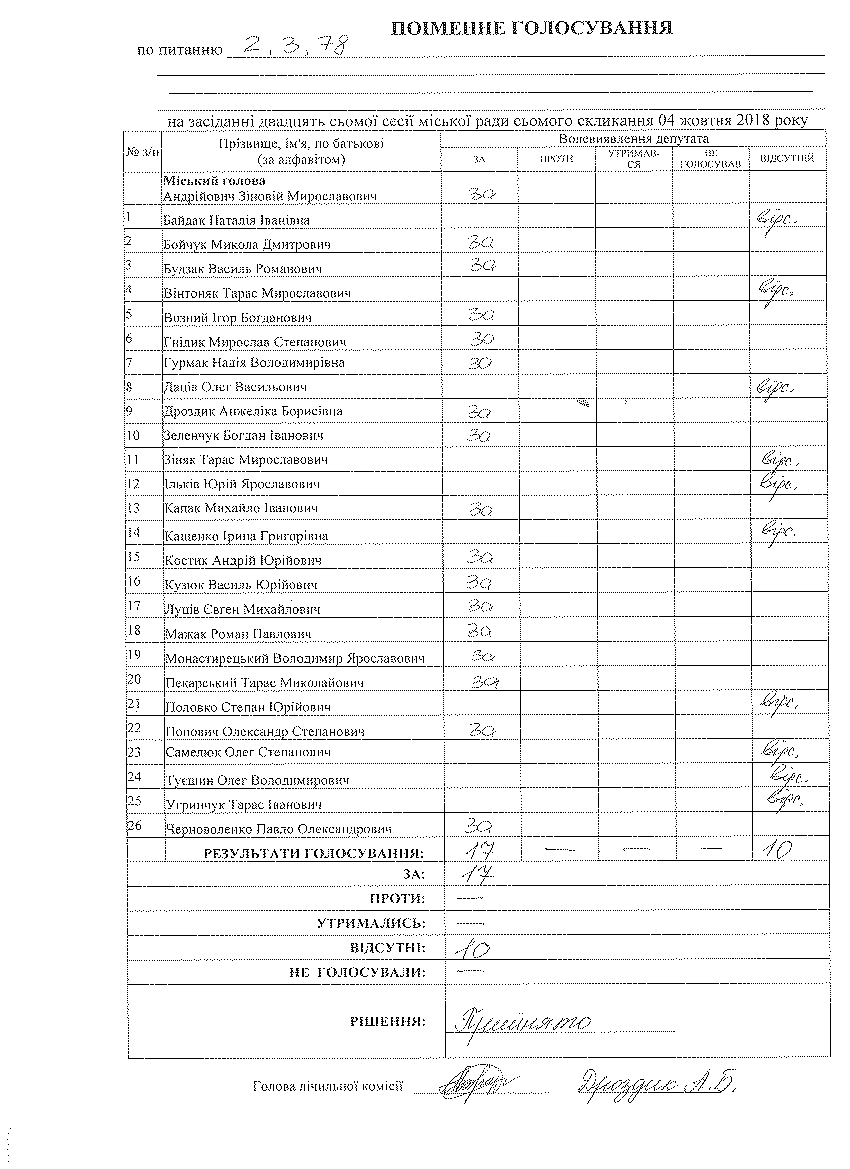 ПОІМЕННЕ ГОЛОСУВАННЯ
по питанню 2, 3, 78
на засіданні двадцять сьомої сесії міської ради сьомого скликання 04 жовтня 2018 року
№ з/п Прізвище, ім'я, по батькові (за алфавітом) Волевиявлення депутата
ЗА ПРОТИ УТРИМАВ-СЯ НЕ ГОЛОСУВАВ ВІДСУТНІЙ
Міський голова
Андрійович Зіновій Мирославович за
1 Байдак Наталія Іванівна відс.
2 Бойчук Микола Дмитрович за
3 Будзак Василь Романович за
4 Вінтоняк Тарас Мирославович відс.
5 Возний Ігор Богданович за
6 Гнідик Мирослав Степанович за
7 Гурмак Надія Володимирівна за
8 Даців Олег Васильович відс.
9 Дроздик Анжеліка Борисівна за
10 Зеленчук Богдан Іванович за
11 Зіняк Тарас Мирославович відс.
12 Ільків Юрій Ярославович відс.
13 Капак Михайло Іванович за
14 Кащенко Ірина Григорівна відс.
15 Костик Андрій Юрійович за
16 Кузюк Василь Юрійович за
17 Луців Євген Михайлович за
18 Мажак Роман Павлович за
19 Монастирецький Володимир Ярославович за
20 Пекарський Тарас Миколайович за
21 Половко Степан Юрійович відс.
22 Попович Олександр Степанович за
23 Самелюк Олег Степанович відс.
24 Туєшин Олег Володимирович відс.
25 Угринчук Тарас Іванович відс.
26 Черноволенко Павло Олександрович за
РЕЗУЛЬТАТИ ГОЛОСУВАННЯ: 17 — — — 10
ЗА: 17
ПРОТИ: —
УТРИМАЛИСЬ: —
ВІДСУТНІ: 10
НЕ ГОЛОСУВАЛИ: —
РІШЕННЯ: Прийнято
Голова лічильної комісії Дроздик А.Б.